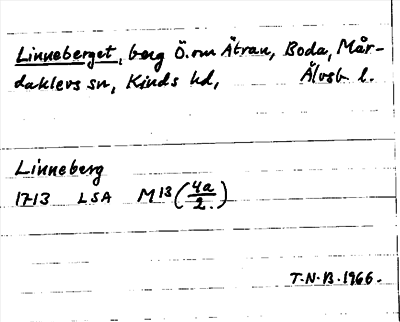 Linneberget, berg Ö.om Ätran, Boda, Mår-
daklevs sn, Kinds hd, Älvsb. l.
Linneberg
1713 LSA M13 (4a/2.)
T.N.B. 1966.